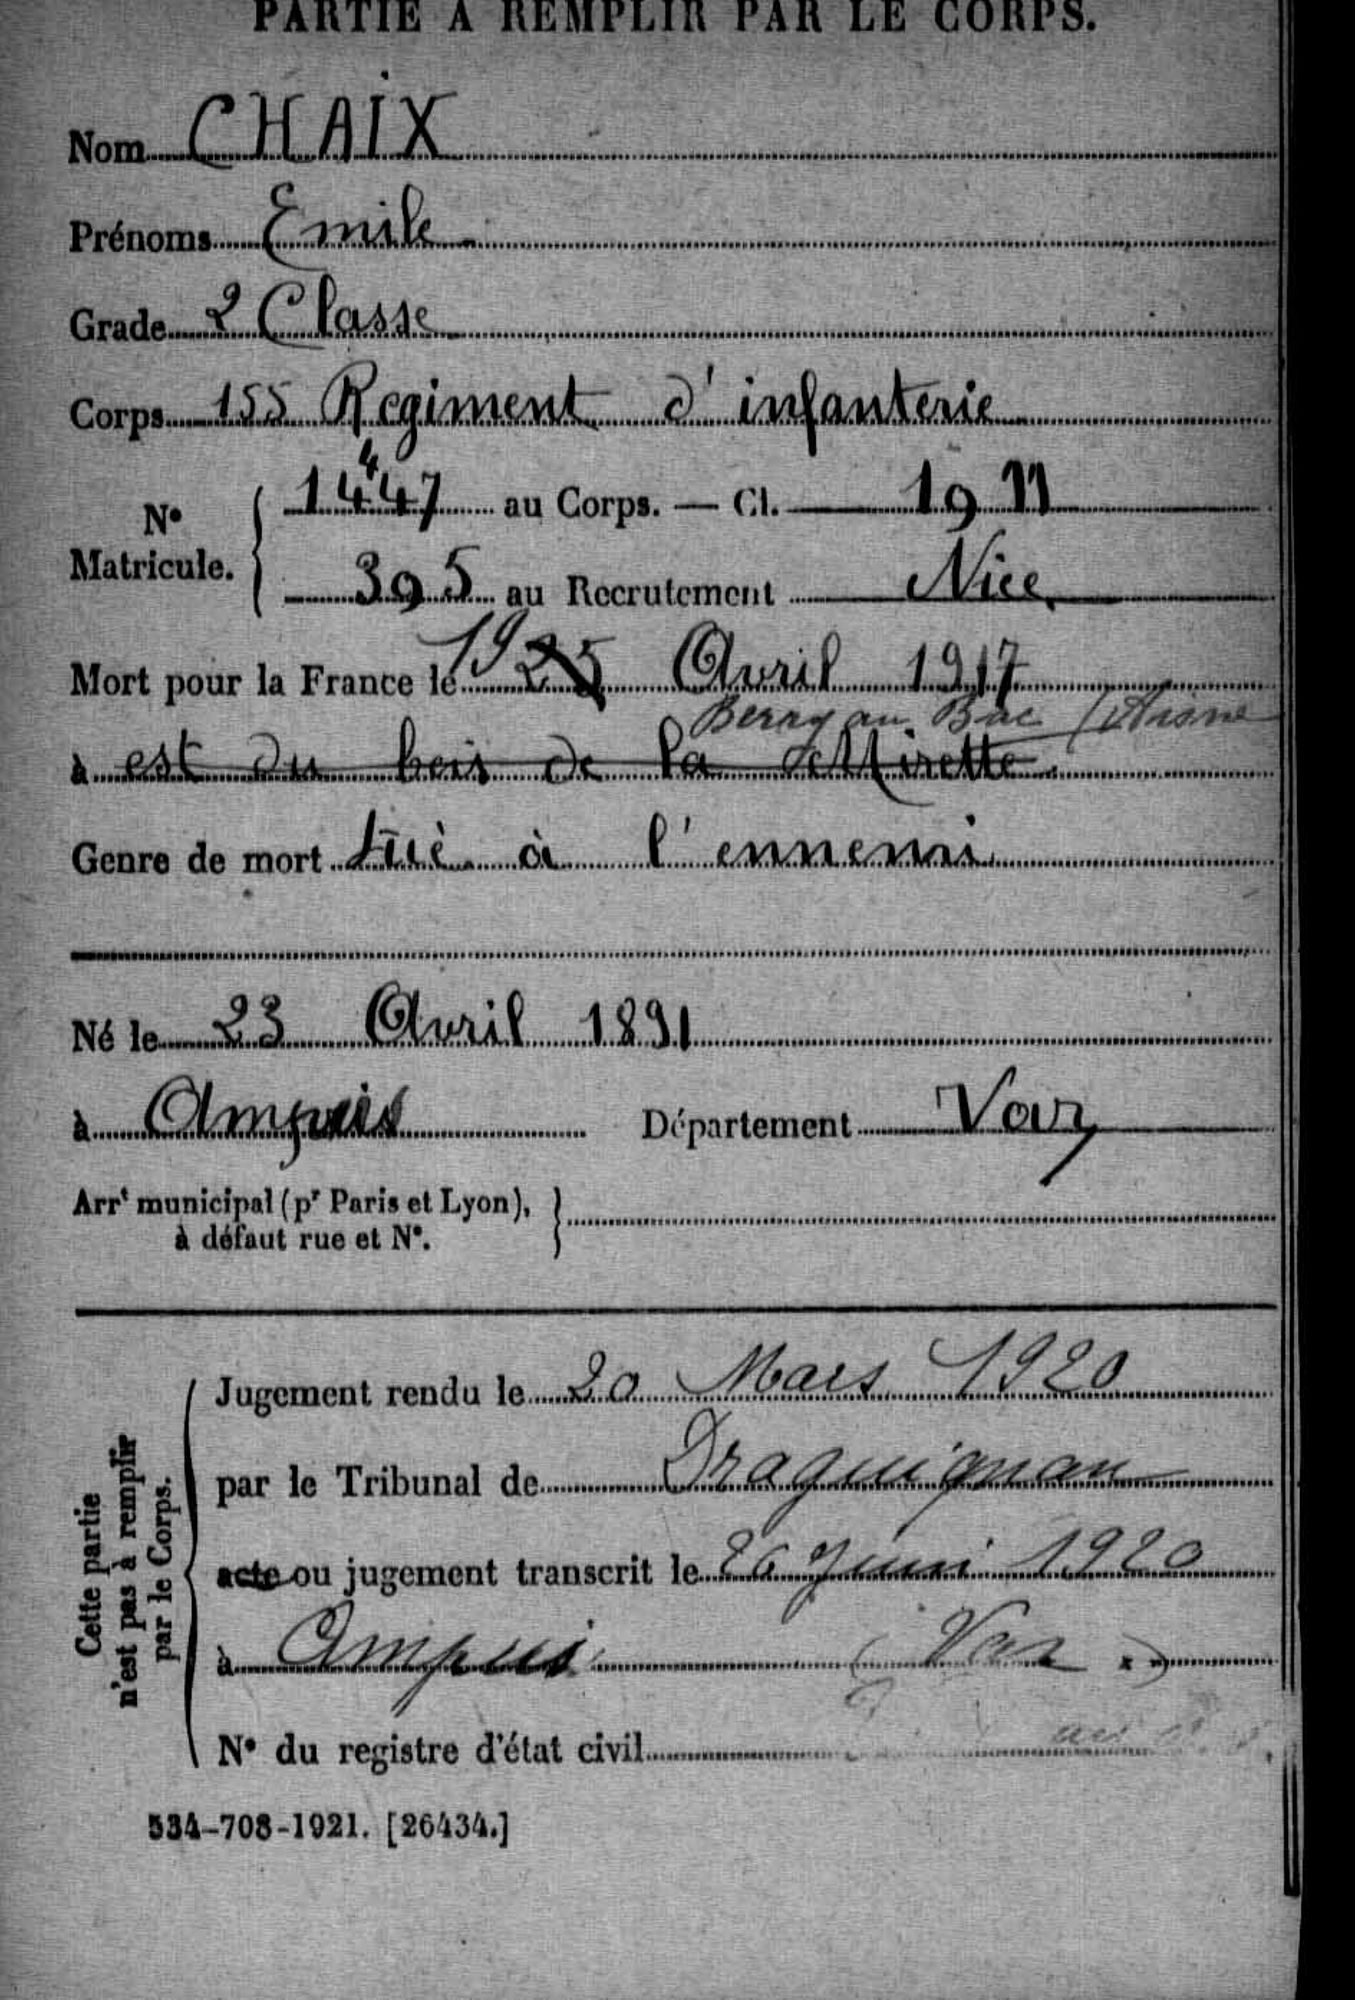 PARTIE À REMPLIR PAR LE CORPS.
Nom CHAIX
Prénoms Emile
Grade 2 Classe
Corps 155 Regiment d'infanterie
N° Matricule. { 14447 au Corps. — Cl. 1911
395 au Recrutement Nice
Mort pour la France le 19 25 Avril 1917
Berry au Bac (Aisne
à est du bois de la Mirette
Genre de mort tué à l'ennemi
Né le 23 Avril 1891
à Ampus Département Var
Arrt municipal (pr Paris et Lyon), à défaut rue et N°. }
Cette partie n'est pas à remplir par le Corps.
Jugement rendu le 20 Mars 1920
par le Tribunal de Draguignan
acte ou jugement transcrit le 26 Juin 1920
à Ampus (Var.)
N° du registre d'état civil
534-708-1921. [26434.]